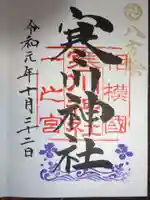 八方除
相模國
寒川神社
一之宮
令和元年十月二十二日